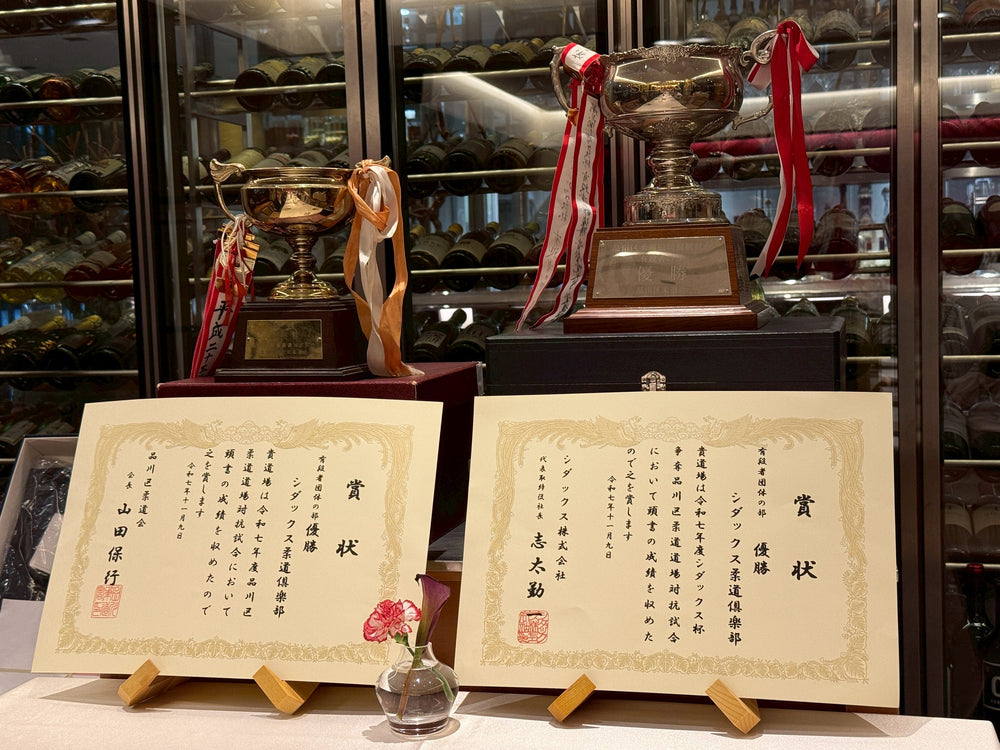 賞状
有段者団体の部 優勝
シダックス柔道倶楽部
貴道場は令和七年度品川区
柔道道場対抗試合において
頭書の成績を収めたので
之を賞します
令和七年十一月九日
品川区柔道会
会長 山田保行
賞状
有段者団体の部 優勝
シダックス柔道倶楽部
貴道場は令和七年度シダックス杯
争奪品川区柔道道場対抗試合
において頭書の成績を収めた
ので之を賞します
令和七年十一月九日
シダックス株式会社
代表取締役社長 志太勤一
優勝
平成二十